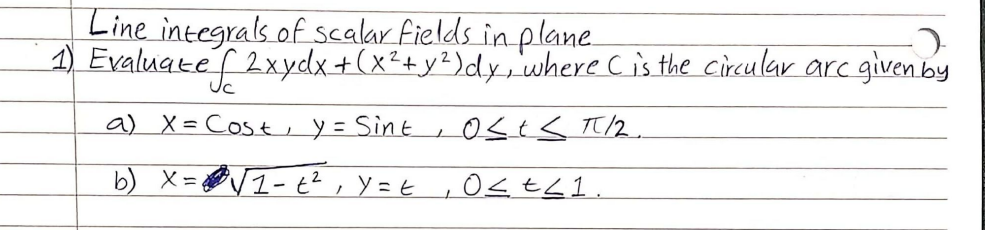 Line integrals of scalar fields in plane
1) Evaluate ∫_C 2xydx + (x²+y²)dy, where C is the circular arc given by
a) x = Cost, y = Sint, 0 ≤ t ≤ π/2.
b) x = √1-t², y = t, 0 ≤ t ≤ 1.